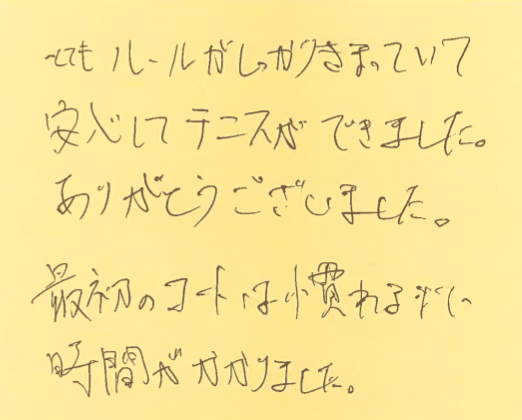 とても ルールがしっかりきまっていて
安心して テニスが できました。
ありがとうございました。
最初の コートは 慣れるまでに
時間が かかりました。